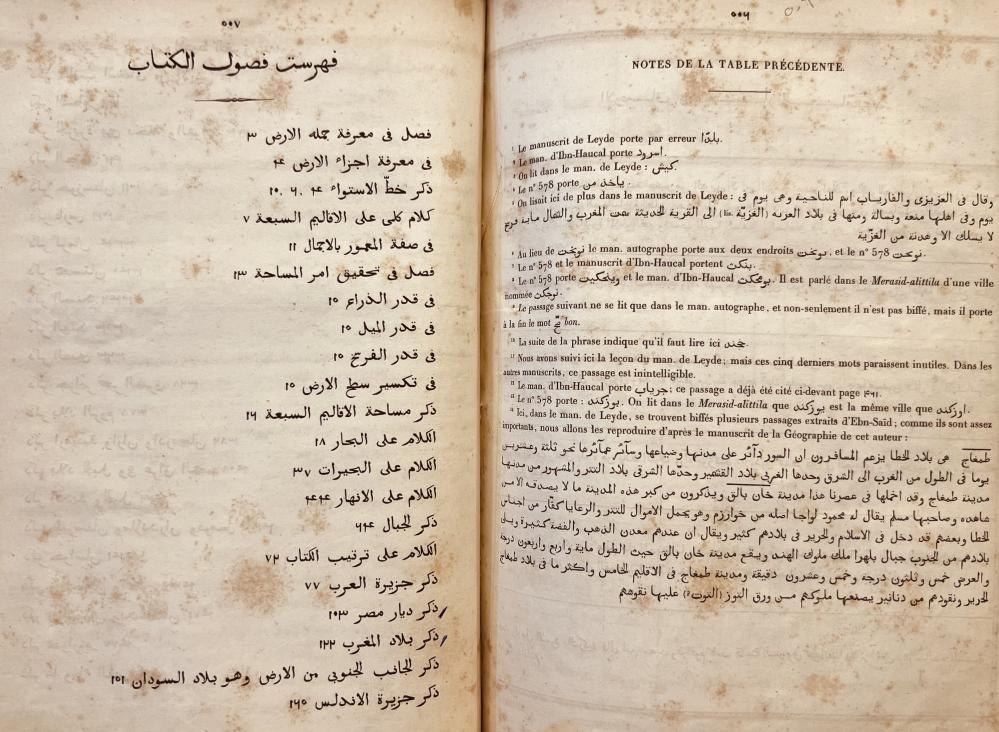 ٥٠٦
NOTES DE LA TABLE PRÉCÉDENTE.
¹ Le manuscrit de Leyde porte par erreur بلدّا.
² Le man. d'Ibn-Haucal porte اسرود.
³ On lit dans le man. de Leyde : كيش.
⁴ Le n° 578 porte ياخذ من.
⁵ On lisait ici de plus dans le manuscrit de Leyde : وقال فى العزيزى والفارياب اسم للناحية وهى يوم فى
يوم وفى اهلها منعة وبسالة ومنها فى بلاد الغربه (الغزيّة lis.) الى القرية الحديثة سمت المغرب والشمال ماية فرسخ
لا يسلك الا وهدنة من الغزّية
⁶ Au lieu de نوبخت le man. autographe porte aux deux endroits , et le n° 578 .
⁷ Le n° 578 et le manuscrit d'Ibn-Haucal portent بنكث.
⁸ Le n° 578 porte et le man. d'Ibn-Haucal . Il est parlé dans le Merasid-alittila d'une ville
nommée .
⁹ Le passage suivant ne se lit que dans le man. autographe, et non-seulement il n'est pas biffé, mais il porte
à la fin le mot صح bon.
¹⁰ La suite de la phrase indique qu'il faut lire ici خجند.
¹¹ Nous avons suivi ici la leçon du man. de Leyde; mais ces cinq derniers mots paraissent inutiles. Dans les
autres manuscrits, ce passage est inintelligible.
¹² Le man. d'Ibn-Haucal porte جرياب; ce passage a déjà été cité ci-devant page ۴٩١.
¹³ Le n° 578 porte : بوركند. On lit dans le Merasid-alittila que يوزكند est la même ville que اوزكند.
¹⁴ Ici, dans le man. de Leyde, se trouvent biffés plusieurs passages extraits d'Ebn-Saïd; comme ils sont assez
importants, nous allons les reproduire d'après le manuscrit de la Géographie de cet auteur :
طمغاج هى بلاد الخطا يزعم المسافرون ان السور دآئر على مدنها وضياعها وسآئر عمآئرها نحو ثلثة وعشرين
يوما فى الطول من الغرب الى الشرق وحدها الغربى بلاد القشمير وحدّها الشرقى بلاد التتر والمشهور من مدنها
مدينة طمغاج وقد اخملها فى عصرنا هذا مدينة خان بالق ويذكرون من كبر هذه المدينة ما لا يصدقه الا من
شاهده وصاحبها مسلم يقال له محمود لواجا اصله من خوارزم وهو يحمل الاموال للتتر والرعايا كفّار من اجناس
الخطا وبعضهم قد دخل فى الاسلام والحرير فى بلادهم كثير ويقال ان عندهم معدن الذهب والفضة كثيرة وبلى
بلادهم من الجنوب جبال بلهرا ملك ملوك الهند ويقع مدينة خان بالق حيث الطول ماية واربع واربعون درجة
والعرض خمس وثلثون درجة وخمس وعشرون دقيقة ومدينة طمغاج فى الاقليم الخامس واكثر ما فى بلاد طمغاج
الحرير ونقودهم من دنانير يصنعها ملوكهم من ورق التوز (التوت ؟) عليها نقوشهم
٥٠٧
فهرست فصول الكتاب
فصل فى معرفة جمله الارض ٣
فى معرفة اجزاء الارض ۴
ذكر خطّ الاستواء ۴، ٦، ٢٥
كلام كلى على الاقاليم السبعة ٧
فى صفة المعمور بالاجمال ١١
فصل فى تحقيق امر المساحة ١٣
فى قدر الذراع ١٥
فى قدر الميل ١٥
فى قدر الفرسخ ١٥
فى تكسير سطح الارض ١٥
ذكر مساحة الاقاليم السبعة ١٦
الكلام على البحار ١٨
الكلام على البحيرات ٣٧
الكلام على الانهار ۴۴
ذكر الجبال ٦۴
الكلام على ترتيب الكتاب ٧٢
ذكر جزيرة العرب ٧٧
ذكر ديار مصر ١٠٣
ذكر بلاد المغرب ١٢٢
ذكر الجانب الجنوبى من الارض وهو بلاد السودان ١٥١
ذكر جزيرة الاندلس ١٦٥